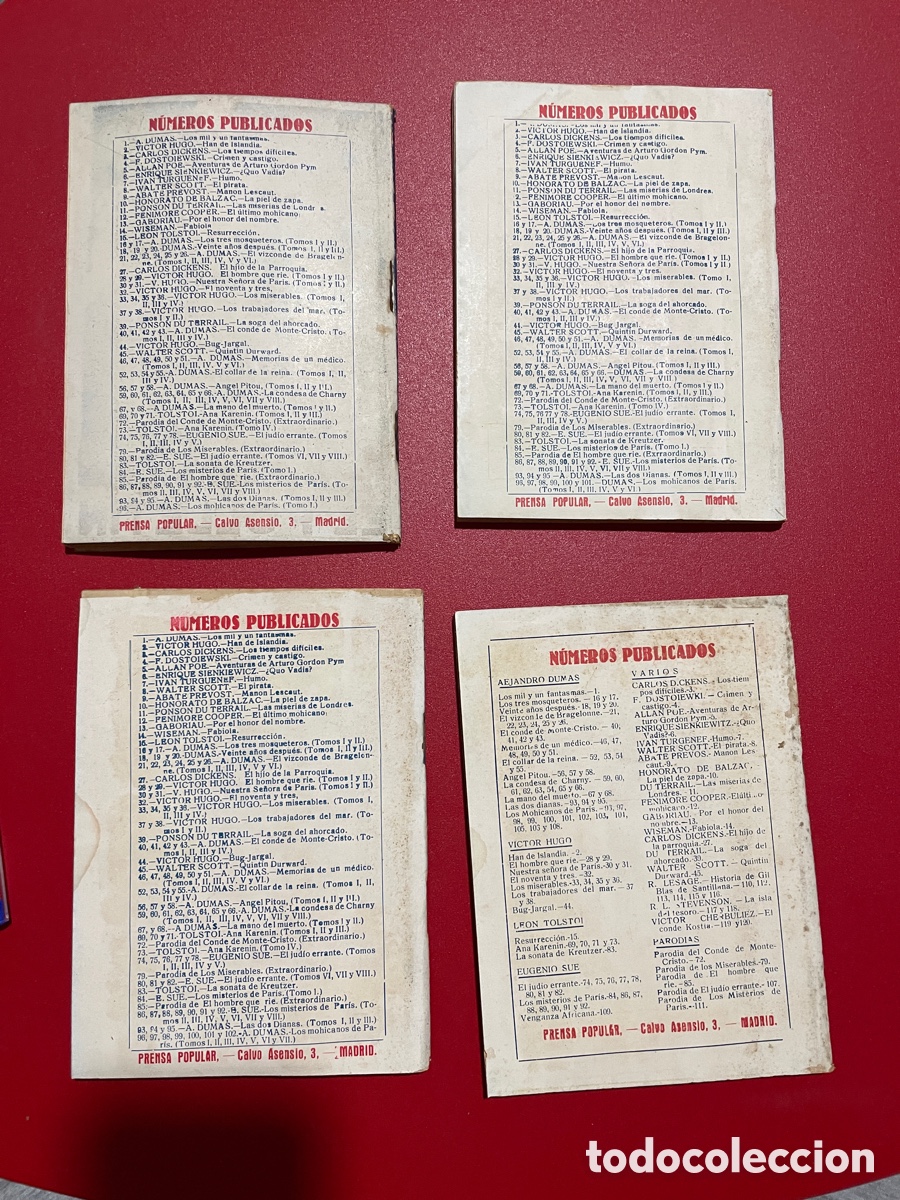 NÚMEROS PUBLICADOS
1.—A. DUMAS.—Los mil y un fantasmas.
2.—VICTOR HUGO.—Han de Islandia.
3.—CARLOS DICKENS.—Los tiempos difíciles.
4.—F. DOSTOIEWSKI.—Crimen y castigo.
5.—ALLAN POE.—Aventuras de Arturo Gordon Pym
6.—ENRIQUE SIENKIEWICZ.—¿Quo Vadis?
7.—IVAN TURGUENEF.—Humo.
8.—WALTER SCOTT.—El pirata.
9.—ABATE PREVOST.—Manon Lescaut.
10.—HONORATO DE BALZAC.—La piel de zapa.
11.—PONSON DU TERRAIL.—Las miserias de Londres.
12.—FENIMORE COOPER.—El último mohicano.
13.—GABORIAU.—Por el honor del nombre.
14.—WISEMAN.—Fabiola.
15.—LEON TOLSTOI.—Resurrección.
16 y 17.—A. DUMAS.—Los tres mosqueteros. (Tomos I y II.)
18, 19 y 20.-DUMAS.-Veinte años después. (Tomos I, II y III.)
21, 22, 23, 24, 25 y 26.—A. DUMAS.—El vizconde de Bragelon-
ne. (Tomos I, II, III, IV, V y VI.)
27.—CARLOS DICKENS. El hijo de la Parroquia.
28 y 29.—VICTOR HUGO. El hombre que ríe. (Tomos I y II.)
30 y 31.—V. HUGO.—Nuestra Señora de París. (Tomos I y II.)
32.—VICTOR HUGO.—El noventa y tres.
33, 34, 35 y 36.—VICTOR HUGO.—Los miserables. (Tomos I,
II, III y IV.)
37 y 38.—VICTOR HUGO.—Los trabajadores del mar. (To-
mos I y II.)
39.—PONSON DU TERRAIL.—La soga del ahorcado.
40, 41, 42 y 43.—A. DUMAS.—El conde de Monte-Cristo. (To-
mos I, II, III y IV.)
44.—VICTOR HUGO.—Bug-Jargal.
45.—WALTER SCOTT.—Quintin Durward.
46, 47, 48, 49, 50 y 51.—A. DUMAS.—Memorias de un médico.
(Tomos I, II, III, IV, V y VI.)
52, 53, 54 y 55.—A. DUMAS.—El collar de la reina. (Tomos I, II,
III y IV.)
56, 57 y 58.—A. DUMAS.—Angel Pitou, (Tomos I, II y III.)
59, 60, 61, 62, 63, 64, 65 y 66.-A. DUMAS.—La condesa de Charny
(Tomos I, II, III, IV, V, VI, VII y VIII.)
67, y 68.—A DUMAS.—La mano del muerto. (Tomos I y II.)
69, 70 y 71.-TOLSTOI.-Ana Karenin. (Tomos I, II y III.)
72.—Parodia del Conde de Monte-Cristo. (Extraordinario.)
73.—TOLSTOI.—Ana Karenin. (Tomo IV.)
74, 75, 76, 77 y 78.—EUGENIO SUE.—El judío errante. (Tomos
I, II, III, IV y V.)
79.—Parodia de Los Miserables. (Extraordinario.)
80, 81 y 82.—E. SUE.—El judío errante. (Tomos VI, VII y VIII.)
83.—TOLSTOI.—La sonata de Kreutzer.
84.—E. SUE.—Los misterios de París. (Tomo I.)
85.—Parodia de El hombre que ríe. (Extraordinario.)
86, 87, 88, 89, 90, 91 y 92.—E. SUE.-Los misterios de París. (To-
mos II, III, IV, V, VI, VII y VIII.)
93, 94 y 95.—A. DUMAS.—Las dos Dianas. (Tomos I, II y III.)
96.—A. DUMAS.—Los mohicanos de París. (Tomo I.)
PRENSA POPULAR, — Calvo Asensio, 3, — Madrid.
NÚMEROS PUBLICADOS
2.—VICTOR HUGO.—Han de Islandia.
3.—CARLOS DICKENS.—Los tiempos difíciles.
4.—F. DOSTOIEWSKI.—Crimen y castigo.
5.—ALLAN POE.—Aventuras de Arturo Gordon Pym.
6.—ENRIQUE SIENKIEWICZ.—¿Quo Vadis?
7.—IVAN TURGUENEF.—Humo.
8.—WALTER SCOTT.—El pirata.
9.—ABATE PREVOST.—Manon Lescaut.
10.—HONORATO DE BALZAC.—La piel de zapa.
11.—PONSON DU TERRAIL.—Las miserias de Londres.
2.—FENIMORE COOPER.—El último mohicano.
13.—GABORIAU.—Por el honor del nombre.
14.—WISEMAN.—Fabiola.
15.—LEON TOLSTOI.—Resurrección.
16 y 17.—A. DUMAS.—Los tres mosqueteros. (Tomos I y II.)
18, 19 y 20.-DUMAS.-Veinte años después. (Tomos I, II y III.)
21, 22, 23, 24, 25 y 26.—A. DUMAS.—El vizconde de Bragelon-
ne. (Tomos I, II, III, IV, V, VI.)
27.—CARLOS DICKENS.—El hijo de la Parroquia
28 y 29.—VICTOR HUGO.—El hombre que ríe. (Tomos I y II.)
30 y 31.—V. HUGO.—Nuestra Señora de París. (Tomos I y II.)
32.—VICTOR HUGO.—El noventa y tres.
33, 34, 35 y 36.—VICTOR HUGO.—Los miserables. (Tomo I,
II, III y IV.)
37 y 38.—VICTOR HUGO.—Los trabajadores del mar. (To-
mos I y II.)
39.—PONSON DU TERRAIL.—La soga del ahorcado.
40, 41, 42 y 43.—A. DUMAS.—El conde de Monte-Cristo. (To-
mos I, II, III y IV.)
44.—VICTOR HUGO.—Bug-Jargal.
45.—WALTER SCOTT.—Quintin Durward.
46, 47, 48, 49, 50 y 51.—A. DUMAS.—Memorias de un médico.
(Tomos I, II, III, IV, V y VI.)
52, 53, 54 y 55.—A. DUMAS.—El collar de la reina. (Tomos I, II,
III y IV.)
56, 57 y 58.—A. DUMAS.—Angel Pitou. (Tomos I, II y III.)
59, 60, 61, 62, 63, 64, 65 y 66.—DUMAS.—La condesa de Charny
(Tomos I, II, III, IV, V, VI, VII y VIII.)
67 y 68.—A. DUMAS.—La mano del muerto. (Tomos I y II.)
69, 70 y 71.-TOLSTOI.-Ana Karenin. (Tomos I, II y III.)
72.—Parodia del Conde de Monte-Cristo. (Extraordinario.)
73.—TOLSTOI.—Ana Karenin. (Tomo IV.)
74, 75, 76, 77 y 78.-EUGENIO SUE.-El judío errante. (Tomos
I, II, III, IV y V.)
79.—Parodia de Los miserables. (Extraordinario.)
80, 81 y 82.—E. SUE.—El judío errante. (Tomos VI, VII y VIII.)
83.—TOLSTOI.—La sonata de Kreutzer.
84.—E. SUE.—Los misterios de París. (Tomo I.)
85.—Parodia de El hombre que ríe. (Extraordinario.)
86, 87, 88, 89, 90, 91 y 92.—E. SUE.-Los misterios de París. (To-
mos II, III, IV, V, VI, VII y VIII.)
93, 94 y 95.—A. DUMAS.—Las dos Dianas. (Tomos I, II y III.)
96, 97, 98, 99, 100 y 101.—DUMAS.—Los mohicanos de París.
(Tomos I, II, III, IV, V y VI.)
PRENSA POPULAR, — Calvo Asensio, 3, — Madrid.
NÚMEROS PUBLICADOS
1.—A. DUMAS.—Los mil y un fantasmas.
2.—VICTOR HUGO.—Han de Islandia.
3.—CARLOS DICKENS.—Los tiempos difíciles.
4.—F. DOSTOIEWSKI.—Crimen y castigo.
5.—ALLAN POE.—Aventuras de Arturo Gordon Pym
6.—ENRIQUE SIENKIEWICZ.—¿Quo Vadis?
7.—IVAN TURGUENEF.—Humo.
8.—WALTER SCOTT.—El pirata.
9.—ABATE PREVOST.—Manon Lescaut.
10.—HONORATO DE BALZAC.—La piel de zapa.
11.—PONSON DU TERRAIL.—Las miserias de Londres.
12.—FENIMORE COOPER.—El último mohicano.
13.—GABORIAU.—Por el honor del nombre.
14.—WISEMAN.—Fabiola.
15.—LEON TOLSTOI.—Resurrección.
16 y 17.—A. DUMAS.—Los tres mosqueteros. (Tomos I y II.)
18, 19 y 20.-DUMAS.-Veinte años después. (Tomos I, II y III.)
21, 22, 23, 24, 25 y 26.—A. DUMAS.—El vizconde de Bragelon-
ne. (Tomos I, II, III, IV, V y VI.)
27.—CARLOS DICKENS. El hijo de la Parroquia.
28 y 29.—VICTOR HUGO. El hombre que ríe. (Tomos I y II.)
30 y 31.—V. HUGO.—Nuestra Señora de París. (Tomos I y II.)
32.—VICTOR HUGO.—El noventa y tres,
33, 34, 35 y 36.—VICTOR HUGO.—Los miserables. (Tomos I,
II, III y IV.)
37 y 38.—VICTOR HUGO.—Los trabajadores del mar. (To-
mos I y II.)
39.—PONSON DU TERRAIL.—La soga del ahorcado.
40, 41, 42 y 43.—A. DUMAS.—El conde de Monte-Cristo. (To-
mos I, II, III y IV.)
44.—VICTOR HUGO.—Bug-Jargal.
45.—WALTER SCOTT.—Quintin Durward.
46, 47, 48, 49, 50 y 51.—A. DUMAS.—Memorias de un médico.
(Tomos I, II, III, IV, V y VI.)
52, 53, 54 y 55.—A. DUMAS.-El collar de la reina. (Tomos I, II,
III y IV.)
56, 57 y 58.—A. DUMAS.—Angel Pitou, (Tomos I, II y III.)
59, 60, 61, 62, 63, 64, 65 y 66.-A. DUMAS.-La condesa de Charny
(Tomos I, II, III, IV, V, VI, VII y VIII.)
67, y 68.—A DUMAS.—La mano del muerto. (Tomos I y II.)
69, 70 y 71.-TOLSTOI.-Ana Karenin. (Tomos I, II y III.)
72.—Parodia del Conde de Monte-Cristo. (Extraordinario.)
73.—TOLSTOI.—Ana Karenin. (Tomo IV.)
74, 75, 76, 77 y 78.—EUGENIO SUE.—El judío errante. (Tomos
I, II, III, IV y V.)
79.—Parodia de Los Miserables. (Extraordinario.)
80, 81 y 82.—E. SUE.—El judío errante. (Tomos VI, VII y VIII.)
83.—TOLSTOI.—La sonata de Kreutzer.
84.—E. SUE.—Los misterios de París. (Tomo I.)
85.—Parodia de El hombre que ríe. (Extraordinario.)
86, 87, 88, 89, 90, 91 y 92.—E. SUE.—Los misterios de París. (To-
mos II, III, IV, V, VI, VII y VIII.)
93, 94 y 95.—A. DUMAS.—Las dos Dianas. (Tomos I, II y III.)
96, 97, 98, 99, 100, 101 y 102.—A. DUMAS.-Los mohicanos de Pa-
rís. (Tomos I, II, III, IV, V, VI y VII.)
PRENSA POPULAR, — Calvo Asensio, 3, — MADRID.
NÚMEROS PUBLICADOS
AEJANDRO DUMAS
Los mil y un fantasmas.—1.
Los tres mosqueteros. — 16 y 17.
Veinte años después.- 18, 19 y 20.
El vizconde de Bragelonne.—21,
22, 23, 24, 25 y 26.
El conde de Monte-Cristo. — 40,
41, 42 y 43.
Memorias de un médico.—46, 47,
48, 49, 50 y 51.
El collar de la reina. — 52, 53, 54
y 55.
Angel Pitou.—56, 57 y 58.
La condesa de Charny. — 59, 60,
61, 62, 63, 64, 65 y 66.
La mano del muerto.—67 y 68.
Las dos dianas.—93, 94 y 95.
Los Mohicanos de París.—96, 97,
98, 99, 100, 101, 102, 103, 104,
105, 106 y 108.
VICTOR HUGO
Han de Islandia.—2.
El hombre que ríe.—28 y 29.
Nuestra señora de París.-30 y 31.
El noventa y tres.—32.
Los miserables.-33, 34, 35 y 36.
Los trabajadores del mar. — 37
y 38.
Bug-Jargal.—44.
LEON TOLSTOI
Resurrección.-15.
Ana Karenin.-69, 70, 71 y 73.
La sonata de Kreutzer.-83.
EUGENIO SUE
El judío errante.-74, 75, 76, 77, 78,
80, 81 y 82.
Los misterios de París.-84, 86, 87,
88, 89, 90, 91 y 92.
Venganza Africana.-109.
VARIOS
CARLOS DICKENS.—Los tiem-
pos difíciles.-3.
F. DOSTOIEWKI. — Crimen y
castigo.-4.
ALLAN POE.-Aventuras de Ar-
turo Gordon Pym.-5.
ENRIQUE SIENKIEWITZ.-¿Quo
Vadis?-6.
IVAN TURGENEF.-Humo.-7.
WALTER SCOTT.-El pirata.-8.
ABATE PREVOS.- Manon Les-
caut.-9.
HONORATO DE BALZAC.
La piel de zapa.-10.
DU TERRAIL.-Las miserias de
Londres.-11.
FENIMORE COOPER.-El últi-o
mohicano.-12.
GABORIAU.- Por el honor del
nombre.—13.
WISEMAN.-Fabiola.-14.
CARLOS DICKENS.-El hijo de
la parroquia.-27.
DU TERRAIL. — La soga del
ahorcado.-39.
WALTER SCOTT. — Quintin
Durward.-45.
R. LESAGE.-Historia de Gil
Blas de Santillana.— 110, 112,
113, 114, 115 y 116.
R. L. STEVENSON. — La isla
del tesoro.—117 y 118.
VICTOR CHERBULIEZ. — El
conde Kostia.—119 y 120.
PARODIAS
Parodia del Conde de Monte-
Cristo.—72.
Parodia de los Miserables.-79.
Parodia de El hombre que
ríe.—85.
Parodia de El judío errante.- 107.
Parodia de Los Misterios de
París.—111.
PRENSA POPULAR, — Calvo Asensio, 3, — MADRID.
todocoleccion